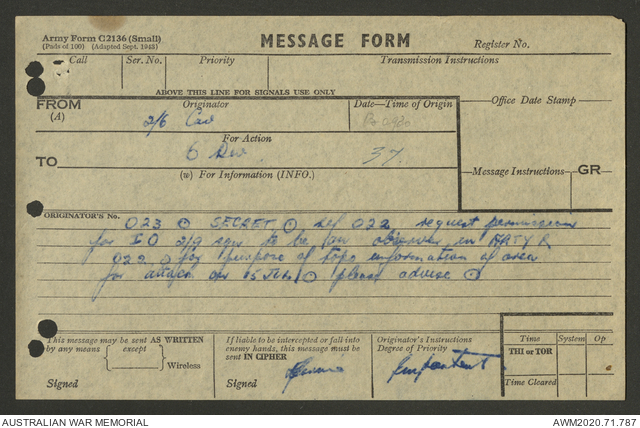 Army Form C2136 (Small)
(Pads of 100) (Adapted Sept. 1943)
MESSAGE FORM
Register No.
Call Ser. No. Priority Transmission Instructions
ABOVE THIS LINE FOR SIGNALS USE ONLY
FROM (A) Originator Date—Time of Origin Office Date Stamp
2/6 Cav
For Action
TO 6 Div 37
(w) For Information (INFO.) Message Instructions GR
ORIGINATOR'S No.
023 ⊙ SECRET ⊙ ref 022 request permission
for IO 2/9 to be an observer in ARTY R
022 for purpose of topo information of area
for attack 15 ⊙ please advise ⊙
This message may be sent AS WRITTEN
by any means except Wireless
Signed
If liable to be intercepted or fall into
enemy hands, this message must be
sent IN CIPHER
Signed
Originator's Instructions
Degree of Priority
Important
Time System Op
THI or TOR
Time Cleared
AUSTRALIAN WAR MEMORIAL AWM2020.71.787